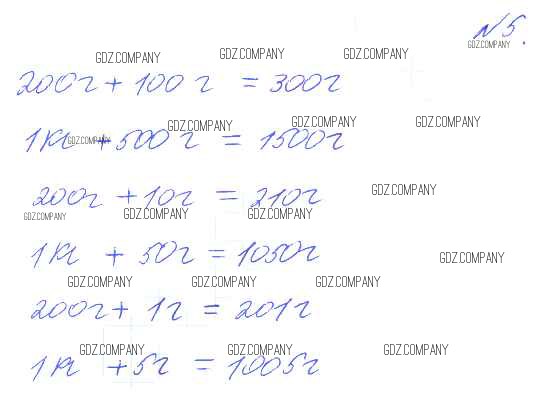 N5.
GDZ.COMPANY GDZ.COMPANY GDZ.COMPANY GDZ.COMPANY
200г + 100г = 300г
GDZ.COMPANY GDZ.COMPANY GDZ.COMPANY
1кг + 500г = 1500г
GDZ.COMPANY
GDZ.COMPANY
200г + 10г = 210г
GDZ.COMPANY GDZ.COMPANY GDZ.COMPANY
1кг + 50г = 1050г
GDZ.COMPANY
GDZ.COMPANY GDZ.COMPANY GDZ.COMPANY
200г + 1г = 201г
GDZ.COMPANY GDZ.COMPANY GDZ.COMPANY
1кг + 5г = 1005г